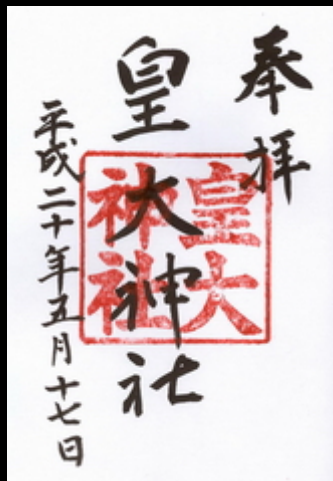 奉拝
皇大神社
皇大
神社
平成二十年五月十七日